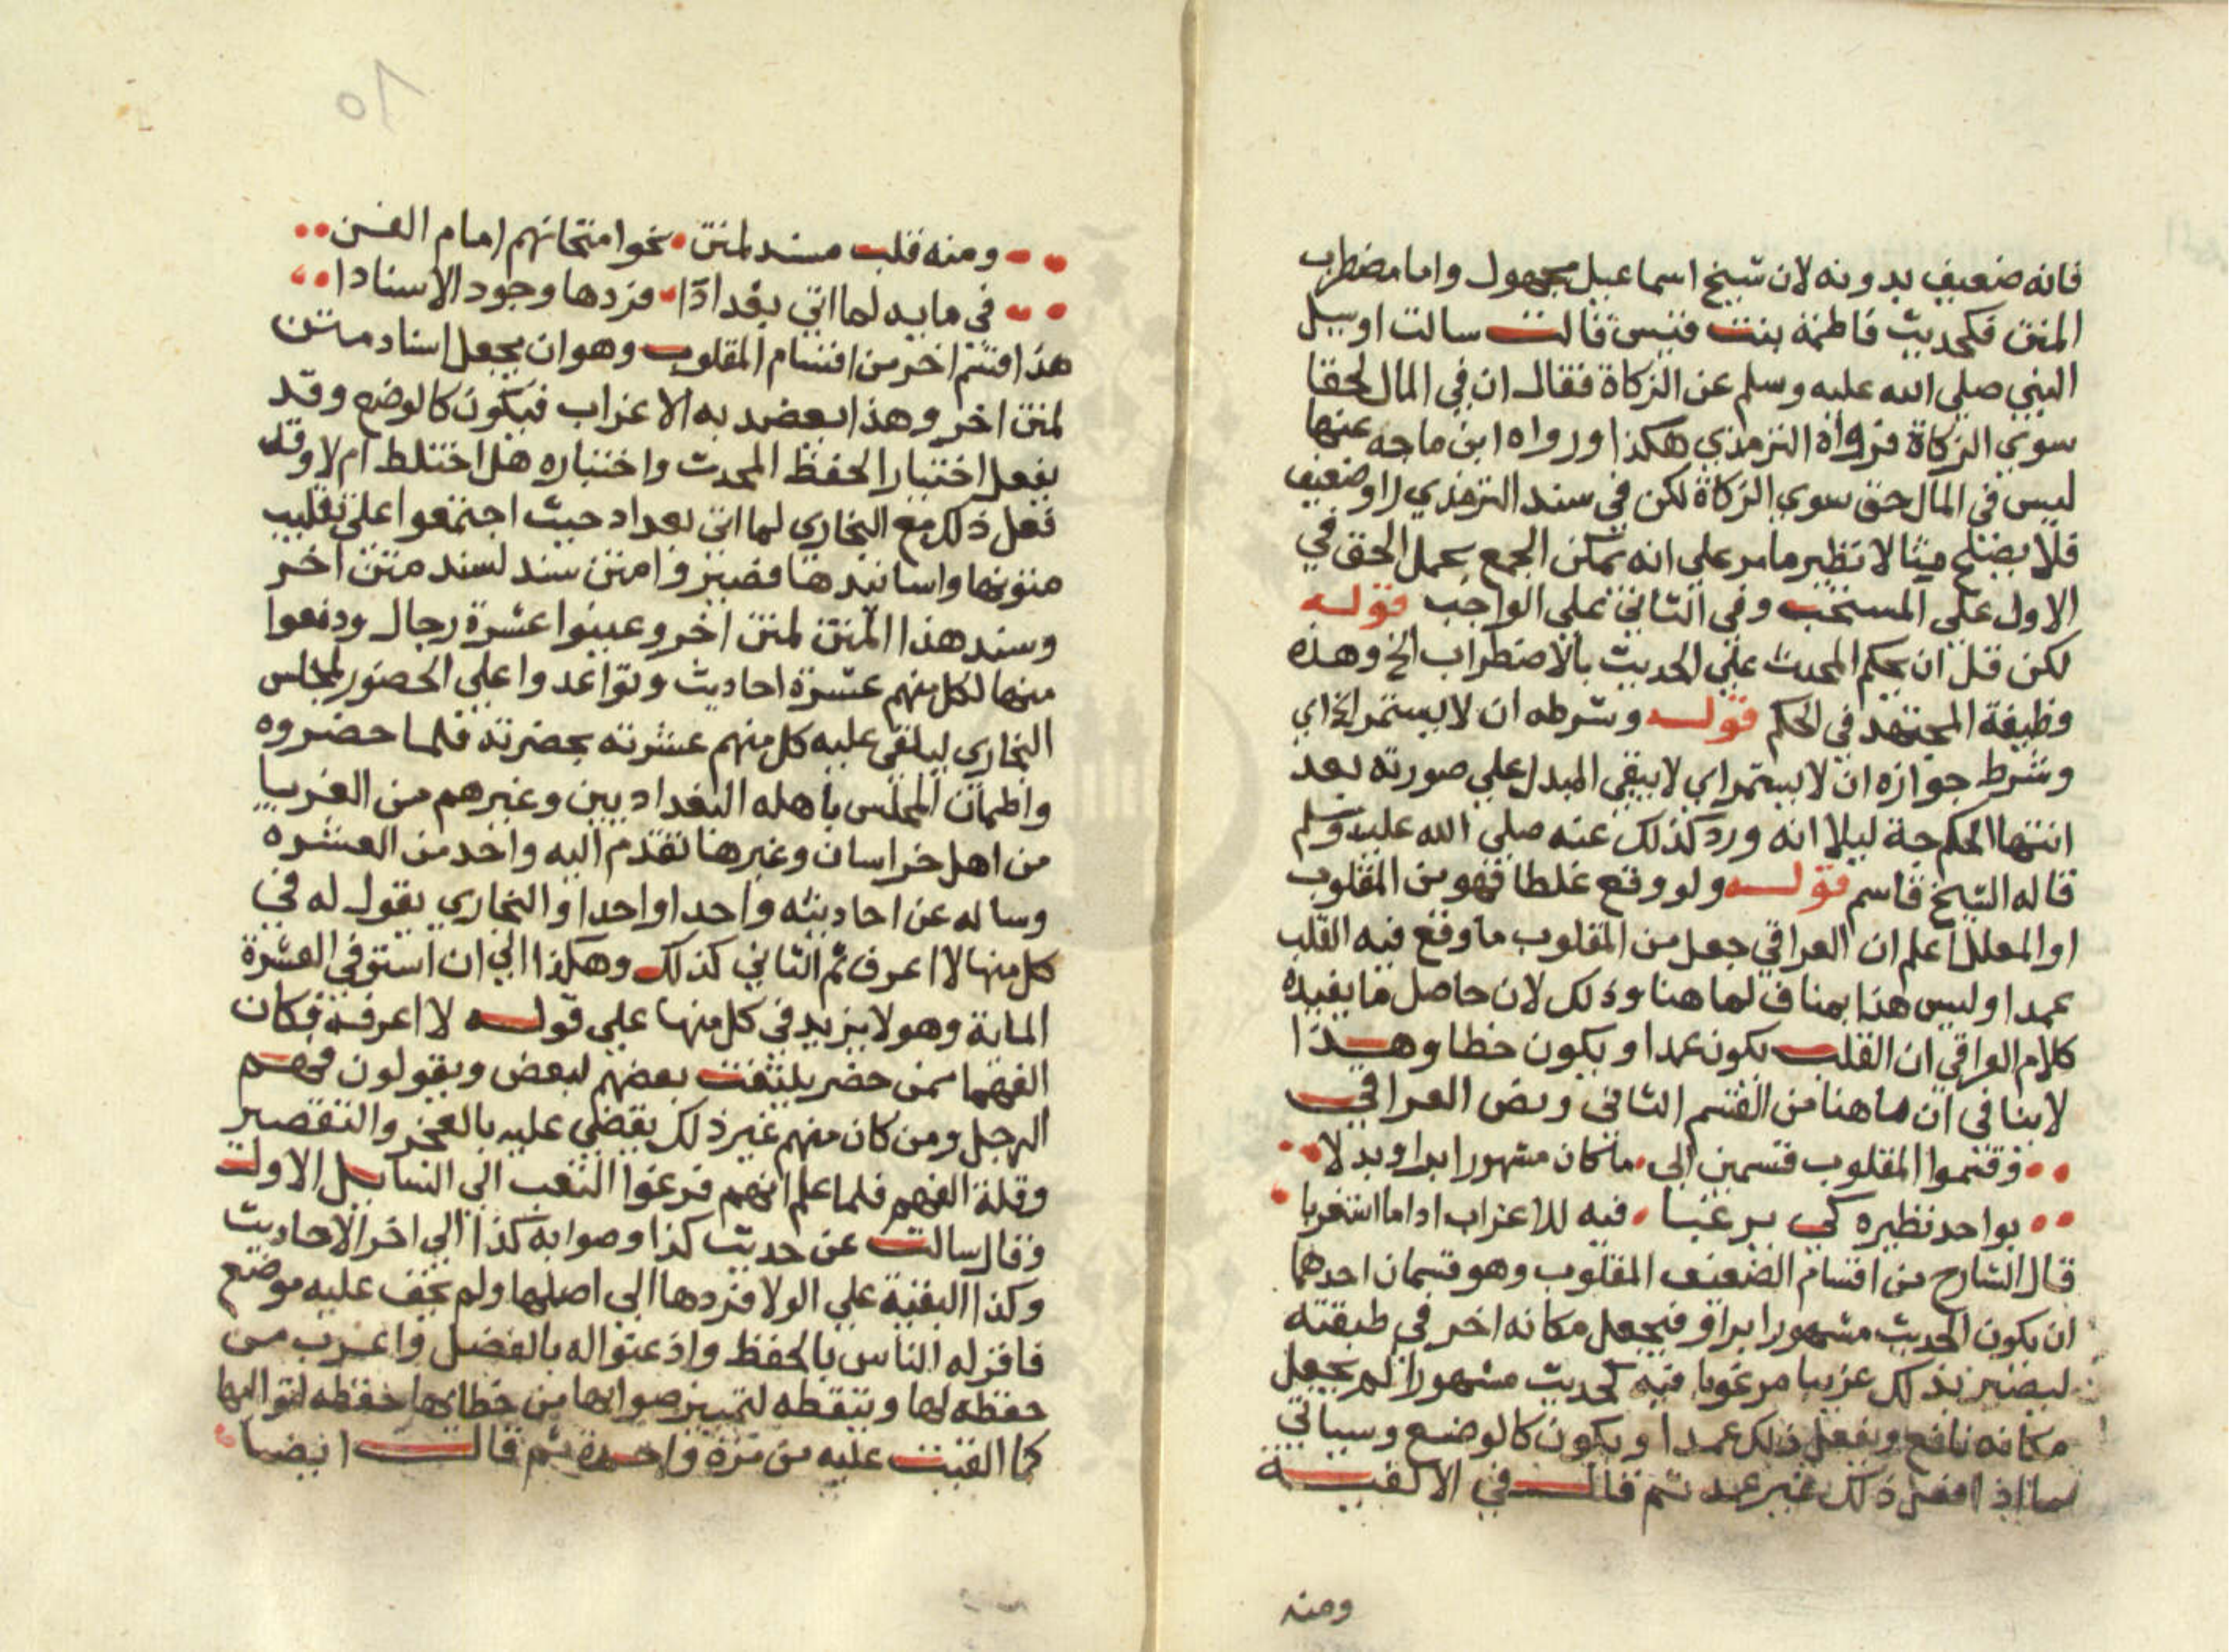 فانه ضعيف بدونه لان شيخ اسماعيل مجهول واما مضطرب
المتن فكحديث فاطمة بنت قيس قالت سالت او سيل
النبي صلي الله عليه وسلم عن الزكاة فقال ان في المال لحقا
سوي الزكاة فرواه الترمذي هكذا ورواه ابن ماجه عنها
ليس في المال حق سوي الزكاة لكن في سند الترمذي راو ضعيف
فلا يصلح مثالا نظير ما مر علي انه يمكن الجمع بحمل الحق في
الاول علي المستحب وفي الثاني علي الواجب قوله
لكن قل ان يحكم المحدث علي الحديث بالاضطراب الخ وهذه
وظيفة المجتهد في الحكم قوله وشرطه ان لا يستمر الخ اي
وشرط جوازه ان لا يستمر اي لا يبقي المبدل علي صورته بعد
انتها الحكم حة ليلا انه ورد كذلك عنه صلي الله عليه وسلم
قاله الشيخ قاسم قوله ولو وقع غلطا فهو من المقلوب
او المعلل اعلم ان العراقي جعل من المقلوب ما وقع فيه القلب
عمدا وليس هذا بمناف لما هنا وذلك لان حاصل ما يفيده
كلام العراقي ان القلب يكون عمدا ويكون خطا وهذا
لا ينافي ان ما هنا من القسم الثاني ونص العراقي
وقسموا المقلوب قسمين الي ما كان مشهورا براو بدلا
بواحد نظيره كي يرغبا فيه للاغراب اذا ما استغربا
قال الشارح من اقسام الضعيف المقلوب وهو قسمان احدهما
ان يكون الحديث مشهورا براو فيجعل مكانه اخر في طبقته
ليصير بذلك غريبا مرغوبا فيه كحديث مشهور لم يجعل
مكانه نافع ويفعل ذلك عمدا ويكون كالوضع وسياتي
ما اذا فعل ذلك غير عمد ثم قال في الالفية
ومنه
10
ومنه قلب سند لمتن نحو امتحانهم امام الفن
في مايه لما اتي بغدادا فردها وجود الاسنادا
هذا قسم اخر من اقسام المقلوب وهو ان يجعل اسناد متن
لمتن اخر وهذا يقصد به الاغراب فيكون كالوضع وقد
يفعل اختبارا لحفظ المحدث واختباره هل اختلط ام لا وقد
فعل ذلك مع البخاري لما اتي بغداد حيث اجتمعوا علي تقليب
متونها واسانيدها فصيروا متن سند لسند متن اخر
وسند هذا المتن لمتن اخر وعينوا عشرة رجال ودفعوا
منها لكل منهم عشرة احاديث وتواعدوا علي الحضور لمجلس
البخاري ليلقي عليه كل منهم عشرته بحضرته فلما حضروه
واطمان المجلس باهله البغداديين وغيرهم من الغربا
من اهل خراسان وغيرها تقدم اليه واحد من العشره
وساله عن احاديثه واحدا واحدا والبخاري يقول له في
كل منها لا اعرف ثم الثاني كذلك وهكذا الي ان استوفي العشرة
الماية وهو لا يزيد في كل منها علي قوله لا اعرفه فكان
الفهما ممن حضر يلتفت بعضهم لبعض ويقولون فهم
الرجل ومن كان منهم غير ذلك يقضي عليه بالعجز والتقصير
وقلة الفهم فلما علم انهم فرغوا التفت الي السايل الاول
وقال سالت عن حديث كذا وصوابه كذا الي اخر الاحاديث
وكذا البقية علي الولا فردها الي اصلها ولم يخف عليه موضع
فاقر له الناس بالحفظ واذعنوا له بالفضل واغرب من
حفظه لها وتيقظه لتمييز صوابها من خطايها حفظه لتواليها
كما القيت عليه من مرة واحدة ثم قال ايضا